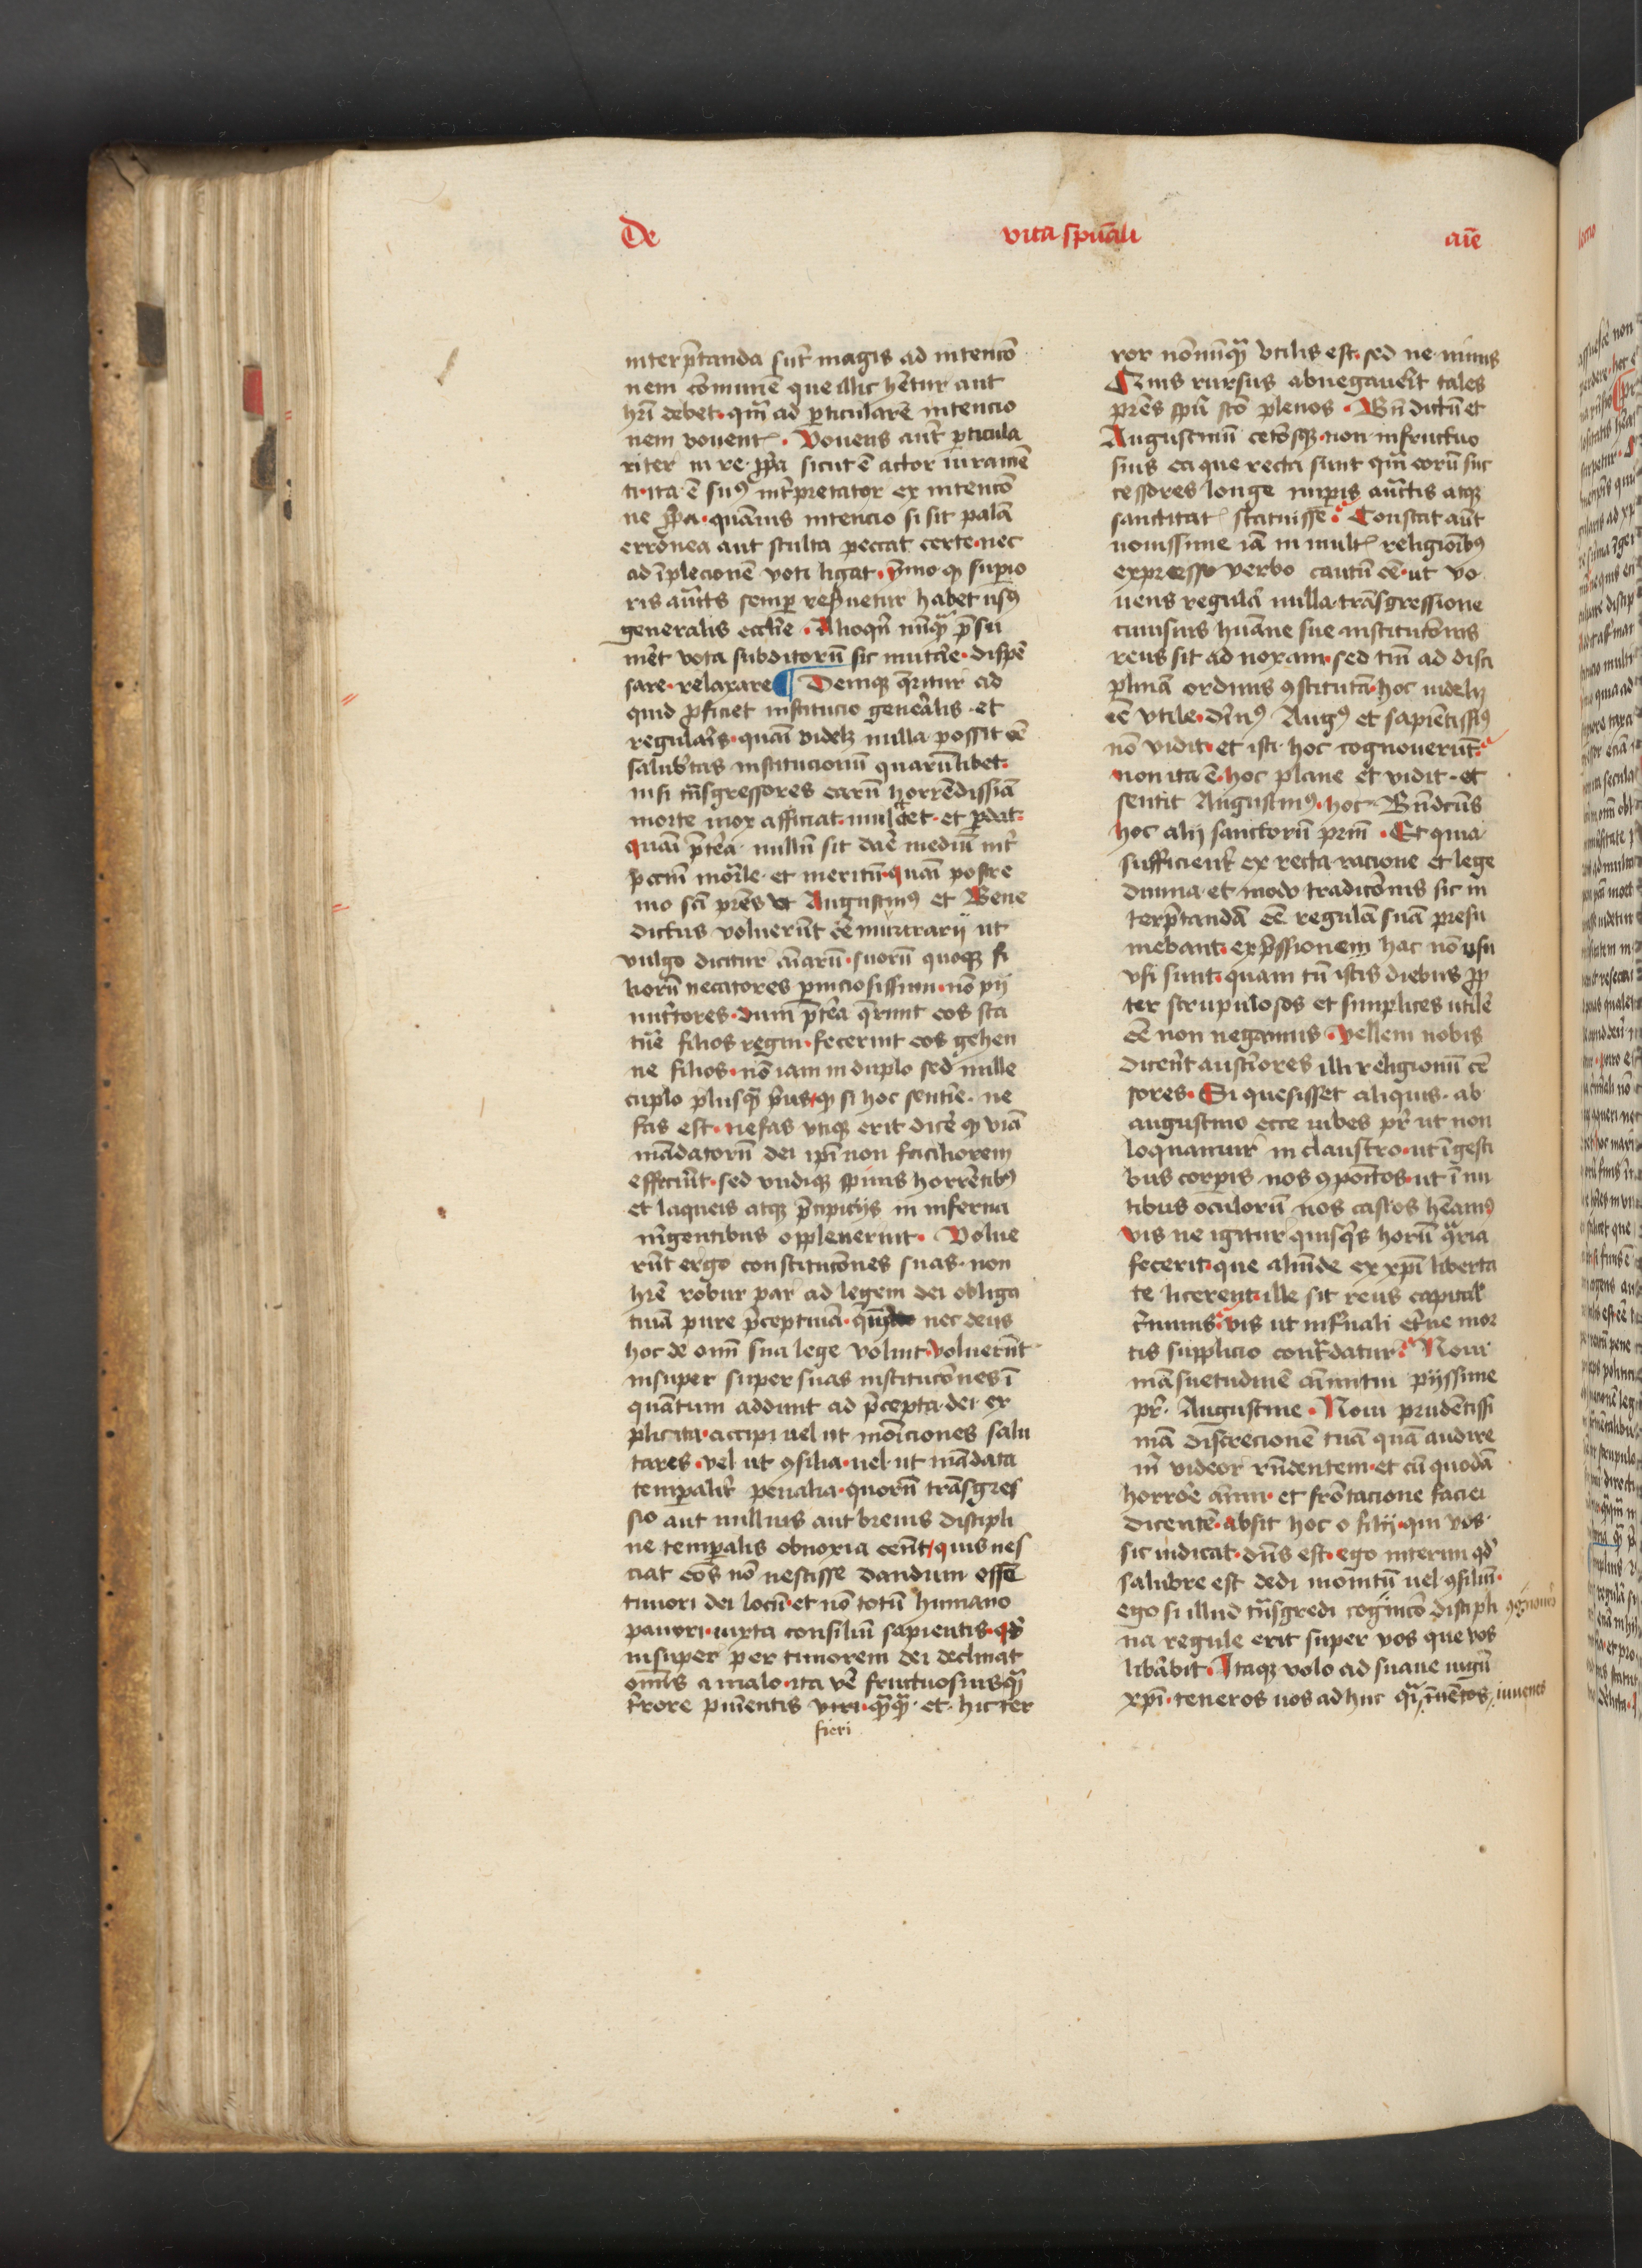 De vita spūali aīe
interp̄tanda sūt magis ad intencō
nem cōmunē que illic hētur aut
hr̄i debet. qm̄ ad ꝑticularē intencio
nem vouent. Vouens aūt ꝑticula
riter in re ꝓpa sicut ē actor iuramē
ti. ita ē suꝰ int̄pretator ex intencō
ne ꝓpa. quāuis intencio si sit palā
erronea aut stulta peccat certe. nec
ad īplecionē voti ligat. ymo ꝙ supio
ris auctīs semꝑ res̄uetur habet usꝰ
generalis ecclīe. Alioqn̄ nūqͣ p̄su
mēt vota subditorū sic mutāe. dispē
sare. relaxare ¶ Deniqꝫ q̄ritur ad
quid ꝓficiet institucio genālis. et
regulaīs. quā videlꝫ nulla possit eē
salubͥtas institucionū quarūlibet.
nisi tn̄sgressores earū horrēdissiā
morte mox afficiat. mulctet. et ꝑdat.
quā p̄tēa nullū sit daē mediū int̄
peccm̄ morͣle. et meritū. quā postre
mo scī pr̄es ut Augustinꝰ et Bene
dictus voluerūt eē murrarij ut
vulgo dicitur aīarū. suorū quoqꝫ fi
liorū necatores ꝑniciosissimi. nō pij
nutͥtores. dum p̄tēa q̄runt eos sta
tuē filios regni. fecerint eos gehen
ne filios. nō iam in duplo sed mille
cuplo plusqͣ p̄us. ꝙ si hoc sentīe. ne
fas est. nefas utiqꝫ erit dicē ꝙ viā
mādatorū dei ip̄i non faciliorem
effecīnt. sed undiqꝫ spinis horrētibꝰ
et laqueis atqꝫ p̄cipicijs in inferna
uīgentibus oppleuerint. Volue
rūt ergo constitucōnes suas. non
hr̄e robur par ad legem dei obliga
tiuā pure p̄ceptiuā. qm̄ nec deus
hoc de omī sua lege voluit. voluerūt
insuper super suas institucōnes ī
quātum addunt ad p̄cepta dei ex
plicita. accipi uel ut moīciones salu
tares. vel ut ꝯsilia. uel ut mādata
temꝑaliī penalia. quorū trāsgres
sio aut nullius aut breuis discipli
ne temꝑalis obnoxia cent. quis nes
ciat eos nō nescisse dandum esse
timori dei locū. et nō totū humano
pauori. iuxta consiliū sapientis. qd̓
insuper per timorem dei declinat
om̄is a malo. ita vē fructuosiusqͣ
t̄rore ꝑuīentis viri. qͣqͣ. et. hic ter
fieri
ror nōnūqͣ utilis est. sed ne nimis
Quis rursus abnegauēit tales
pr̄es spū sc̄o plenos. Bn̄dictū et
Augustinū cetōsqꝫ. non infructuo
sius ea que recta sunt qm̄ eorū suc
cessores longe imparis auctīs atqꝫ
sanctitat statuisse. Constat aūt
nouissime iā in mult religioībꝰ
expresso verbo cautū eē. ut vo
uens regulā nulla trāsgressione
cuiusuis huāne sue institucōnis
reus sit ad noxam. sed tm̄ ad disci
plinā ordinis ꝯstitutā. hoc videlꝫ
eē utile. diuꝰ Augꝰ et sapientissꝰ
nō vidit. et isti hoc cognouerūt.
non ita ē. hoc plane et vidit. et
sentit Augustinꝰ. hoc. Bn̄dcūs
hoc alij sanctorū prm̄. Et quia
sufficient ex recta racione et lege
diuina. et modo tradicōnis sic in
terp̄tandā eē regulā suā presu
mebant. exp̄ssionem hac nō usu
usi sunt. quam tn̄ istis diebus ꝓp
ter scrupulosos et simplices utilē
eē non negamus. Vellem nobis
dicerēt austīores illi religionū cē
sores. Si quesisset aliquis. ab
augustino ecce iubes pr̄ ut non
loquamur in claustro. ut ī gesti
bus corꝑis nos ꝯpoītos. ut ī nu
tibus oculorū nos castos hēamꝰ
vis ne igitur quisqͥs horū q̄ria
fecerit. que aliūde ex xp̄i liberta
te licerent. ille sit reus capital
crīninis. vis ut inf̄nali et̄ne mor
tis supplicio contͣdatur. Noui
māsuetudinē aīmi tui pijssime
pr̄. Augustine. Noui prudētissi
mā discrecionē tuā quā audire
m̄ videor rn̄dentem. et cū quodā
horrōe aīmi. et frōtacione faciei
dicentē. absit hoc o filij. qui vos.
sic iudicat. dūs est. ego interim qd̓
salubre est dedi monitū uel ꝯsiliū.
ego si illud trāsgredi cogūcō discipli
na regule erit super vos que vos
libābit. Itaqꝫ volo ad suaue iugū
xpī. teneros uos adhuc qͣi iuuēcos iuuenes